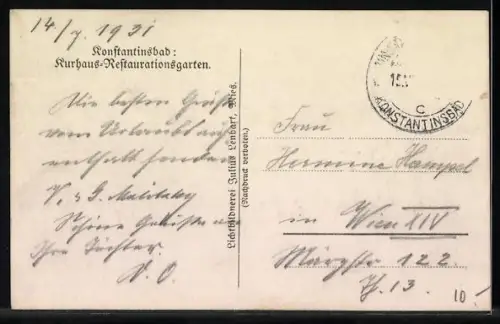 14/7. 1931
Konstantinsbad:
Kurhaus-Restaurationsgarten.
Die besten Grüße
vom Urlaubsauf-
enthalt senden
V. & G.
Schöne Grüße an
Ihre Töchter.
Lichtbildnerei Julius Lenhart, Mies.
(Nachdruck verboten.)
15.
C
KONSTANTINSBAD
Frau
Hermine Hampel
in Wien XIV
Märzstr 122
Th. 13.
10